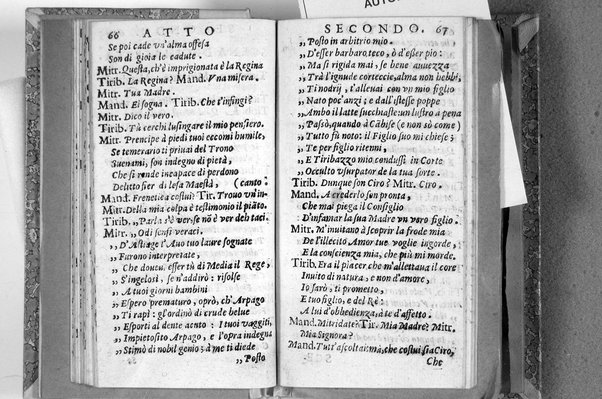 AUTO
66 ATTO
Se poi cade un'alma offesa
Son di gioia le cadute.
Mitr. Questa, ch'è imprigionata è la Regina
Tirib. La Regina? Mand. Una misera.
Mitr. Tua Madre.
Mand. Ei sogna. Tirib. Che t'infingi?
Mitr. Dico il vero.
Tirib. Tù cerchi lusingare il mio pensiero.
Mitr. Prencipe à piedi tuoi eccomi humile,
Se temerario ti privai del Trono
Suenami, son indegno di pietà,
Che si rende incapace di perdono
Delitto fier di lesa Maestà, (canto:
Mand. Frenetica costui? Tir. Trouo un'in-
Mitr. Della mia colpa è testimonio il piãto.
Tirib. „ Parla s'è ver: se nò è ver deh taci.
Mitr. „ Odi sensi veraci.
„ D'Astiage l'Auo tuo laure sognate
„ Furono interpretate,
„ Che doueui esser tù di Media il Rege,
„ S'ingelosì, se n'addirò: risolse
„ A tuoi giorni bambini
„ Espero prematuro, oprò, ch'Arpago
„ Ti rapì: gl'ordinò di crude belue
„ Esporti al dente acuto; I tuoi vaggiti,
„ Impietosito Arpago, e l'opra indegna
„ Stimò di nobil genio; à me ti diede
„ Posto
SECONDO. 67
„ Posto in arbitrio mio.
„ D'esser barbaro, teco, ò d'esser pio:
„ Ma si rigida mai, se bene auuezza
„ Trà l'ignude corteccie, alma non hebbi,
„ Ti nodrij, t'alleuai con vn mio figlio
„ Nato poc'anzi; e dall'istesse poppe
„ Ambo il latte succhiaste: un lustro à pena
„ Passò, quando à Cãbise (e non sò come)
„ Tutto fù noto: il Figlio suo mi chiese;
„ Te per figlio ritenni,
„ E Tiribazzo mio, condussi in Corte
„ Occulto vsurpator de la tua sorte.
Tirib. Dunque son Ciro? Mitr. Ciro.
Mand. A crederlo sun pronta,
Che mai piega il Consiglio
D'infamar la sua Madre vn vero figlio.
Mitr. M'inuitano à scoprir la frode mia
De l'illecito Amor tue voglie ingorde,
E la conscienza mia, che più mi morde.
Tirib. Era il placer, che m'allettaua il core
Inuito di natura, e non d'amore,
Io sarò, ti prometto,
E tuo figlio, e del Rè:
A lui d'obbedienza, à te d'affetto.
Mand. Mitridate? Tir. Mia Madre? Mitr.
Mia Signora?
Mand. Tutt'ascoltai: mà, che costui sia Ciro,
Che